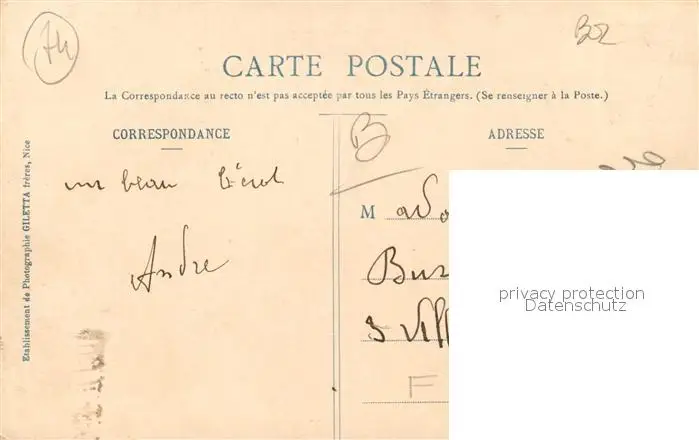 74
B02
CARTE POSTALE
La Correspondance au recto n'est pas acceptée par tous les Pays Étrangers. (Se renseigner à la Poste.)
CORRESPONDANCE
B
ADRESSE
un beau
Andre
M ado
Bur
3 Vill
F
Etablissement de Photographie GILETTA frères, Nice
privacy protection
Datenschutz